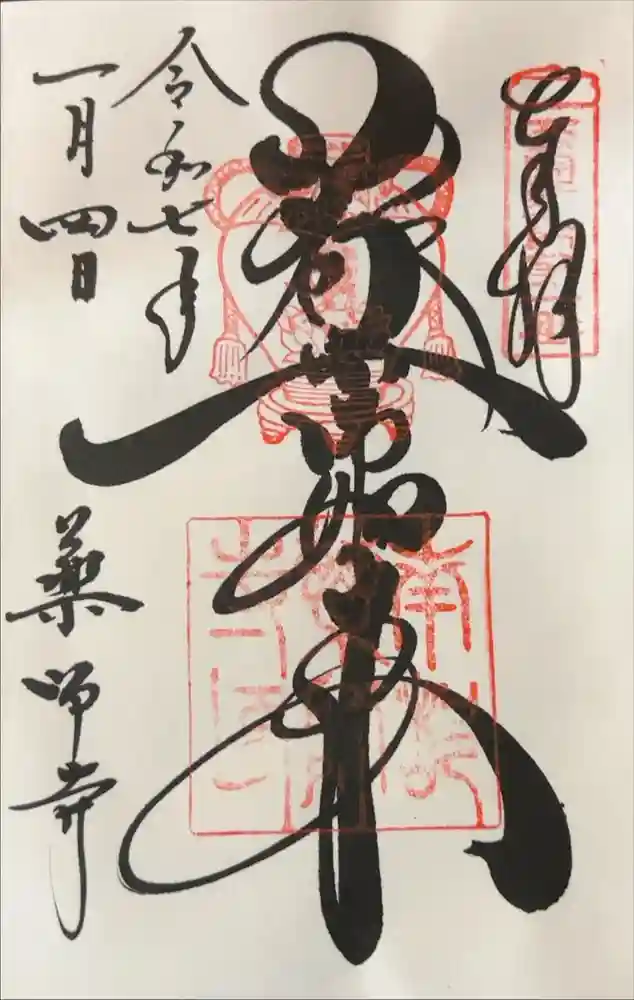 奉拝
薬師如来
令和七年
一月四日
薬師寺